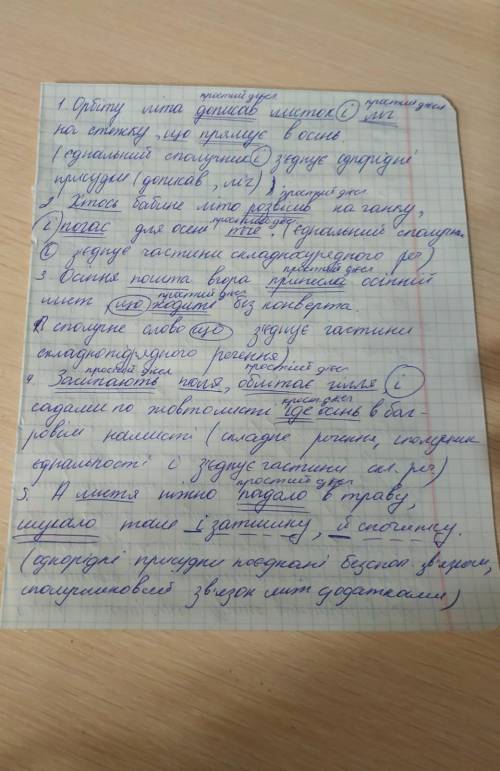 простий дієсл простий дієсл
1. Орбіту літа дописав листок і ліг
на стежку, що прямує в осінь.
(єднальний сполучник і з'єднує однорідні
присудки (дописав, ліг)
простий дієсл
2. Хтось бабине літо розвісив на ганку,
простий дієсл
і погас для осені . (єднальний сполучник
і з'єднує частини складносурядного реч)
простий дієсл
3. Осіння пошта вчора принесла осінній
простий дієсл
лист що ходить без конверта.
сполучне слово що з'єднує частини
складнопідрядного речення)
простий дієсл простий дієсл
4. Засинають поля, облітає гілля і
прост дієсл
садами по жовтолисті іде осінь в баг-
ровім намисті (складне речення, сполучник
єднальності і з'єднує частини скл. реч)
простий дієсл
5. А листя ніжно падало в траву,
шукало там і затишку, й спочинку.
(однорідні присудки поєднані безспол. зв'язком,
сполучниковий зв'язок між додатками)